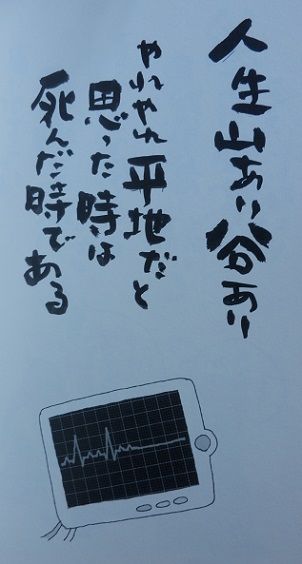 人生山あり谷あり
やれやれ平地だと
思った時は
死んだ時である